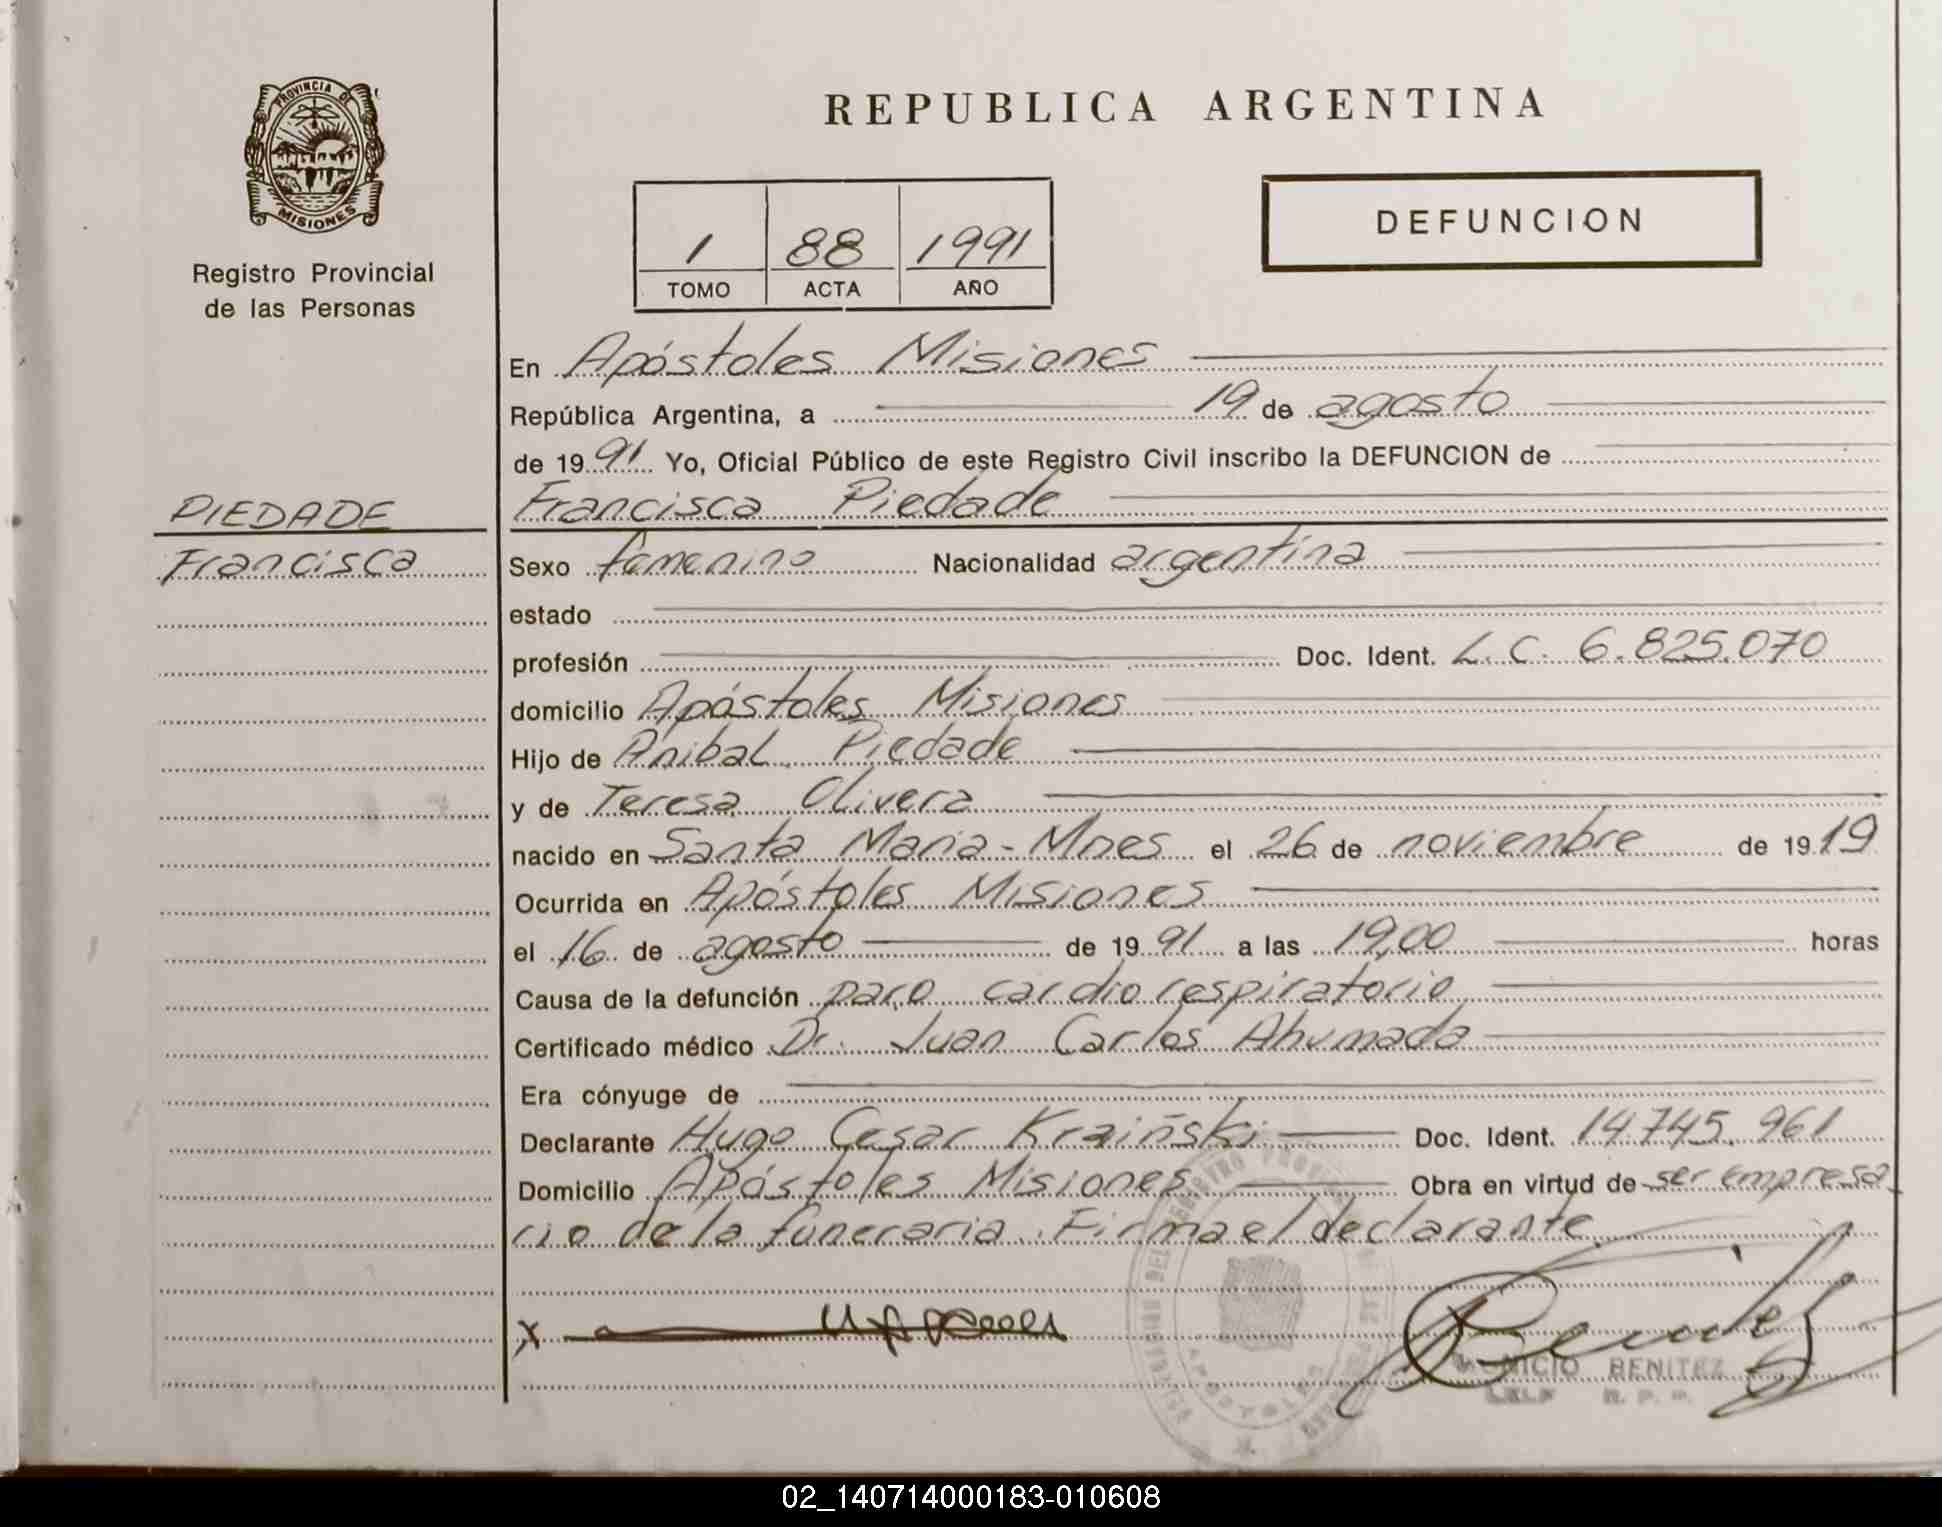 PROVINCIA DE
MISIONES
Registro Provincial
de las Personas
REPUBLICA ARGENTINA
1 88 1991
TOMO ACTA AÑO
DEFUNCION
En Apóstoles Misiones
República Argentina, a 19 de agosto
de 1991 Yo, Oficial Público de este Registro Civil inscribo la DEFUNCION de
PIEDADE
Francisca Piedade
Francisca
Sexo femenino Nacionalidad argentina
estado
profesión Doc. Ident. L.C. 6.825.070
domicilio Apóstoles Misiones
Hijo de Anibal Piedade
y de Teresa Olivera
nacido en Santa Maria - Mnes el 26 de noviembre de 1919
Ocurrida en Apóstoles Misiones
el 16 de agosto de 1991 a las 19,00 horas
Causa de la defunción paro cardio respiratorio
Certificado médico Dr. Juan Carlos Ahumada
Era cónyuge de
Declarante Hugo Cesar Kraiñski Doc. Ident. 14.745.961
Domicilio Apóstoles Misiones Obra en virtud de ser empresa
rio de la funeraria. Firma el declarante.
X
BENITEZ
APOSTOLES
02_140714000183-010608